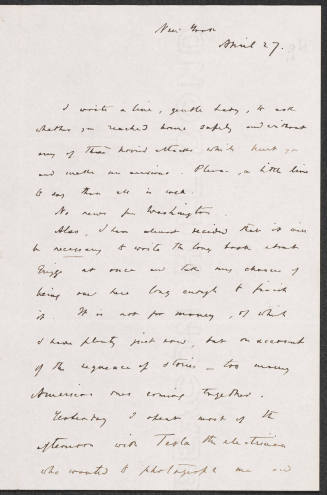 New York
April 27.
I write a line, gentle lady, to ask
whether you reached home safely and without
any of those horrid attacks which hurt you
and make me anxious. Please, a little line
to say that all is well.
No news from Washington.
Alas, I have almost decided that it will
be necessary to write the long book about
at once and take my chances of
being here long enough to finish
it. It is not for money, of which
I have plenty just now, but on account
of the sequence of stories — too many
American ones coming together.
Yesterday I spent most of the
afternoon with Tesla the electrician
who wanted to photograph me and